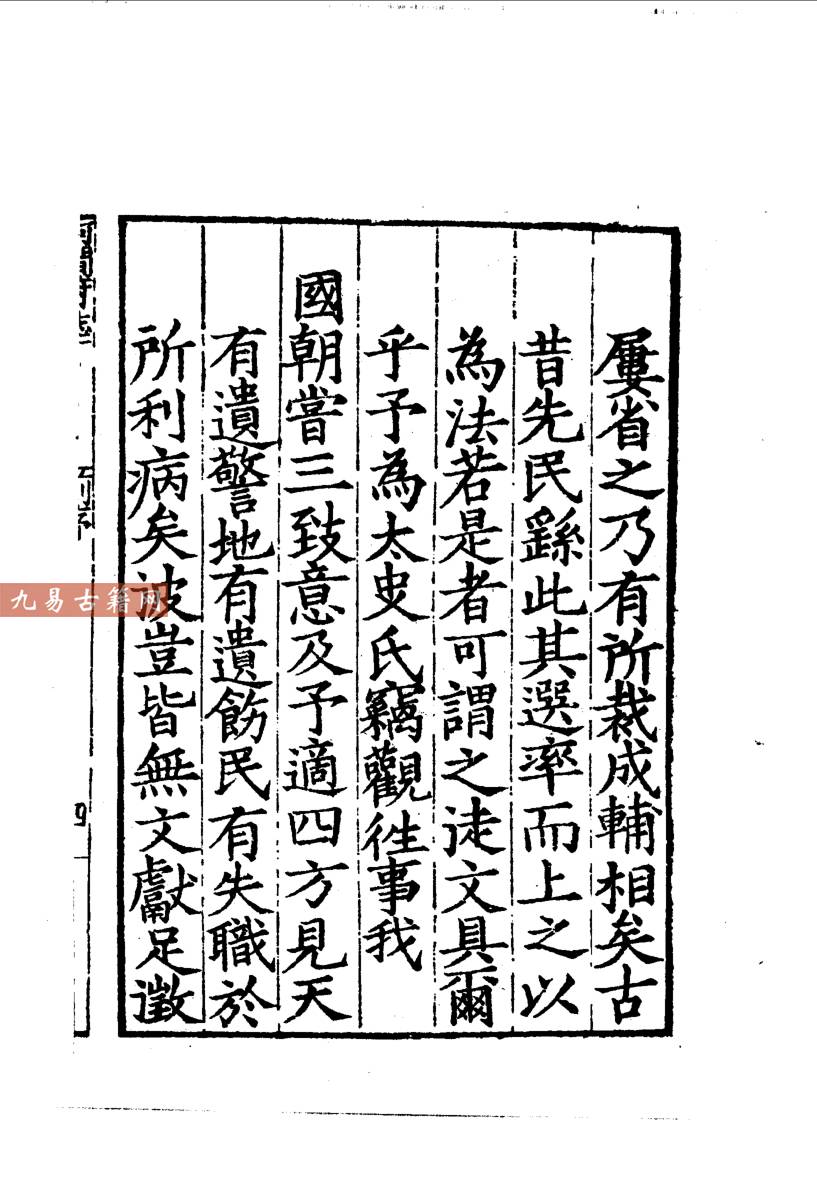 屢省之乃有所裁成輔相矣古
昔先民繇此其選率而上之以
為法若是者可謂之徒文具爾
乎予為太史氏竊觀往事我
國朝嘗三致意及予適四方見天
有遺警地有遺飭民有失職於
所利病矣彼豈皆無文獻足徵
河間府志
四
九易古籍网